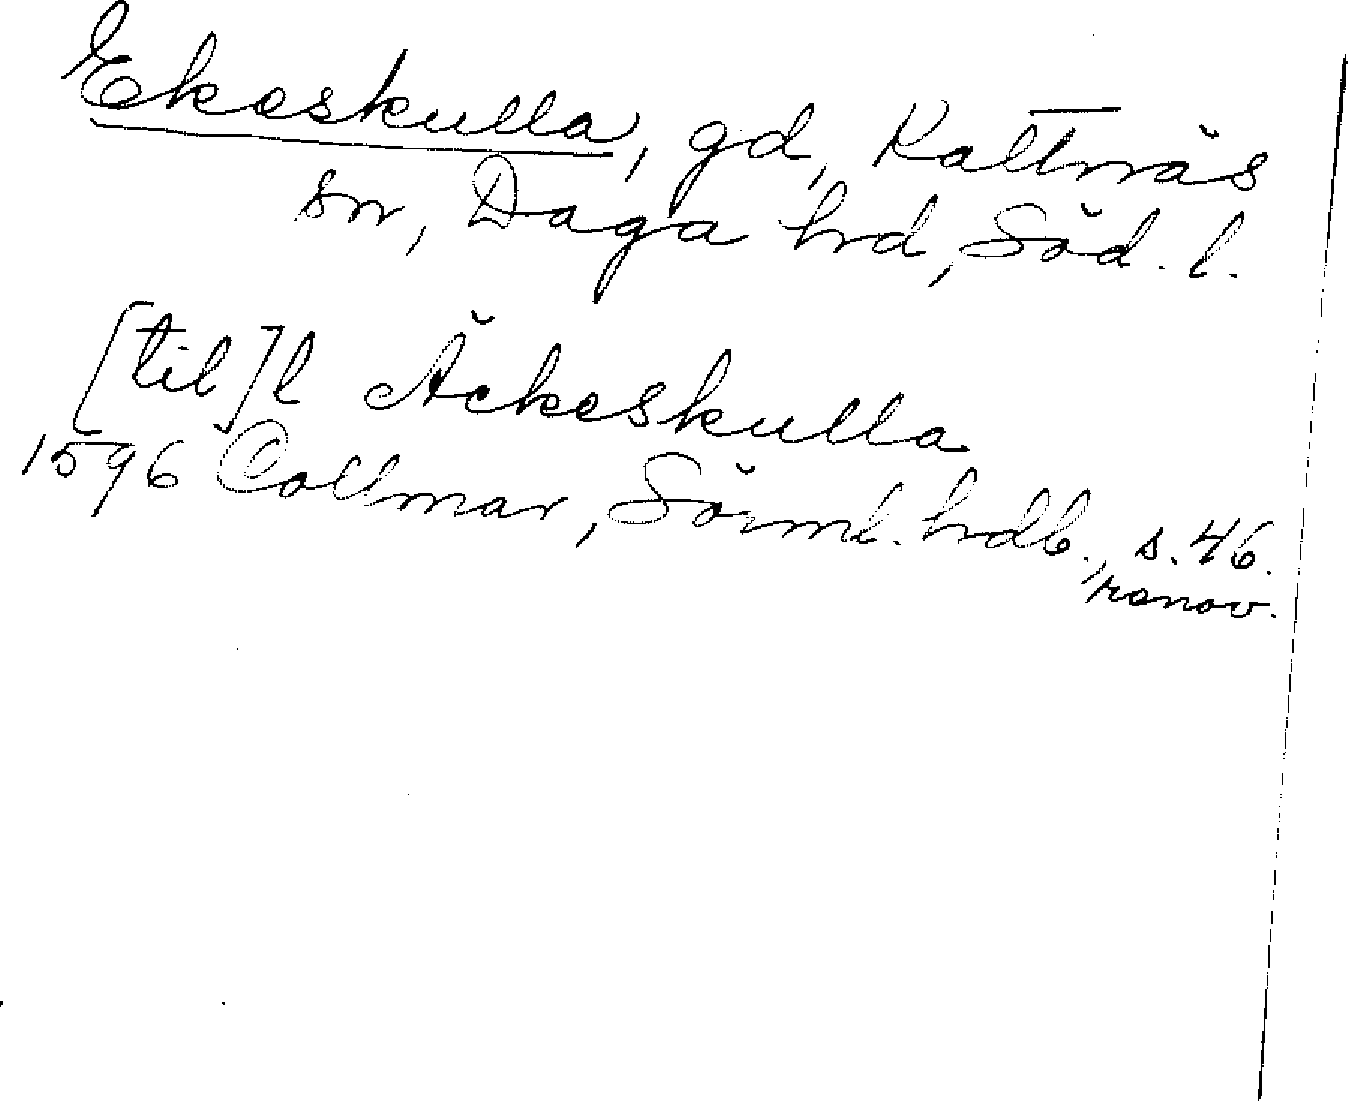 Ekeskulla, gd, Kattnäs
sn, Daga hrd, Söd. l.
[til]l Äckeskulla
1596 Collmar, Sörml. hrdb., s. 46.
renov.